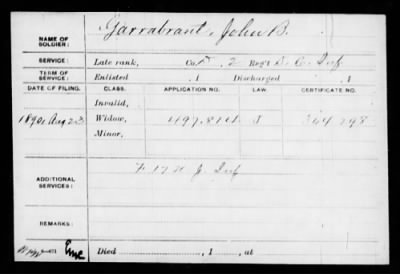 NAME OF SOLDIER: Garrabrant, John B.
SERVICE: Late rank, Co. 2 Reg't D. C. Inf
TERM OF SERVICE: Enlisted , 1 Discharged , 1
DATE OF FILING. CLASS. APPLICATION NO. LAW. CERTIFICATE NO.
Invalid,
1890, Aug 23 Widow,
Minor,
F 17 N J Inf
ADDITIONAL SERVICES:
REMARKS:
Died , 1 , at